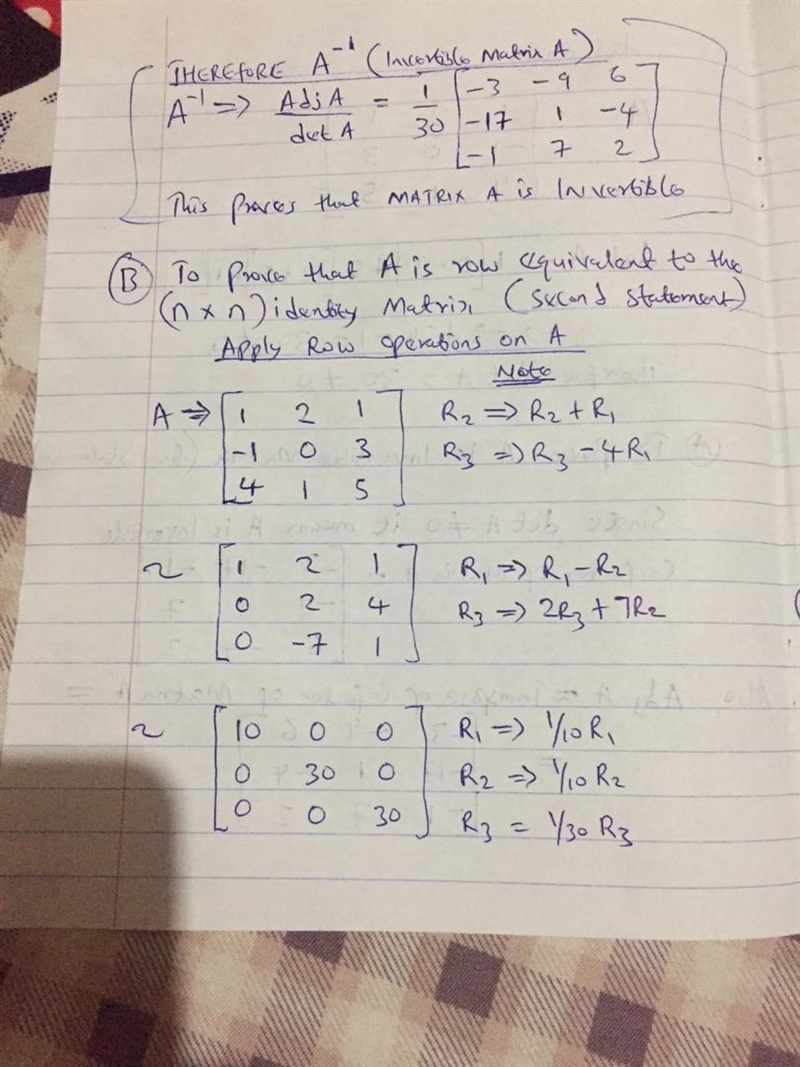 THEREFORE A⁻¹ (Invertible Matrix A)
A⁻¹ => Adj A / det A = 1/30 [-3 -9 6
-17 1 -4
-1 7 2]
This proves that MATRIX A is Invertible
(B) To prove that A is row equivalent to the
(n x n) identity Matrix, (second statement)
Apply Row operations on A
Note
A => [1 2 1 R₂ => R₂ + R₁
-1 0 3 R₃ => R₃ - 4R₁
4 1 5]
~ [1 2 1 R₁ => R₁ - R₂
0 2 4 R₃ => 2R₃ + 7R₂
0 -7 1]
~ [10 0 0 R₁ => 1/10 R₁
0 30 0 R₂ => 1/10 R₂
0 0 30] R₃ = 1/30 R₃